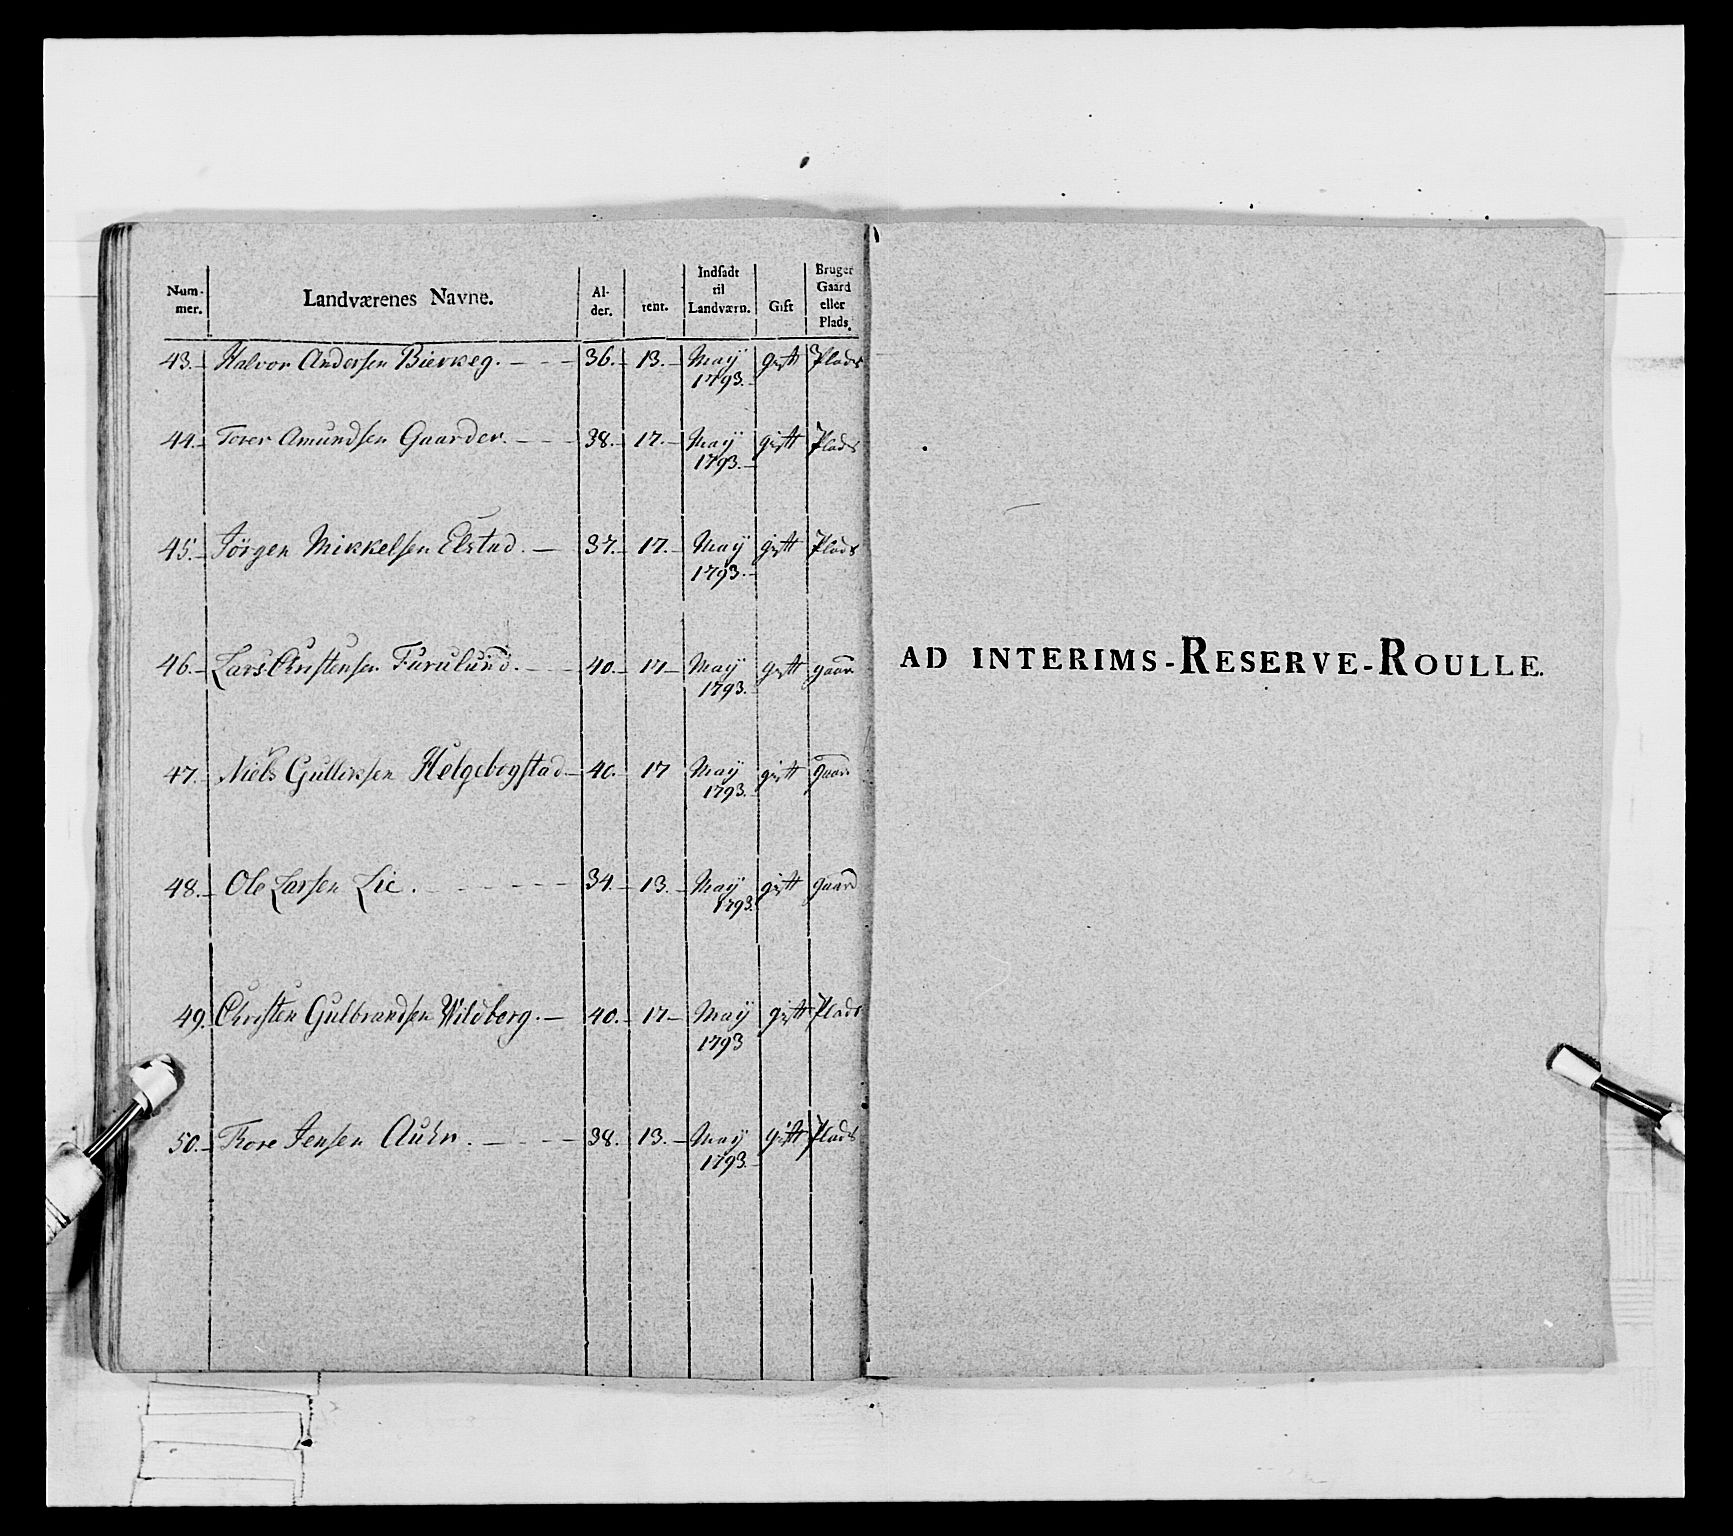 Num-
mer.
Landværenes Navne.
Al-
der.
tent.
Indsadt
til
Landværn.
Gift
Bruger
Gaard
eller
Plads.
43. Halvor Andersen Bierkeg. 36. 13. May gift Plads
1793.
44. Torer Amundsen Gaarder. 38. 17. May gift Plads
1793.
45. Jörgen Mikkelsen Elstad. 37. 17. May gift Plads
1793.
46. Lars Christensen Furulund. 40. 17 May gift gaar
1793.
47. Niels Gulliksen Helgebogstad 40. 17 May gift gaar
1793.
48. Ole Larsen Lie. 34. 13. May gift gaard
1793.
49. Christen Gulbrandsen Wildberg. 40. 17 May gift Plads
1793
50. Thore Jensen 38. 13. May gift Plads
1793.
AD INTERIMS-RESERVE-ROULLE.